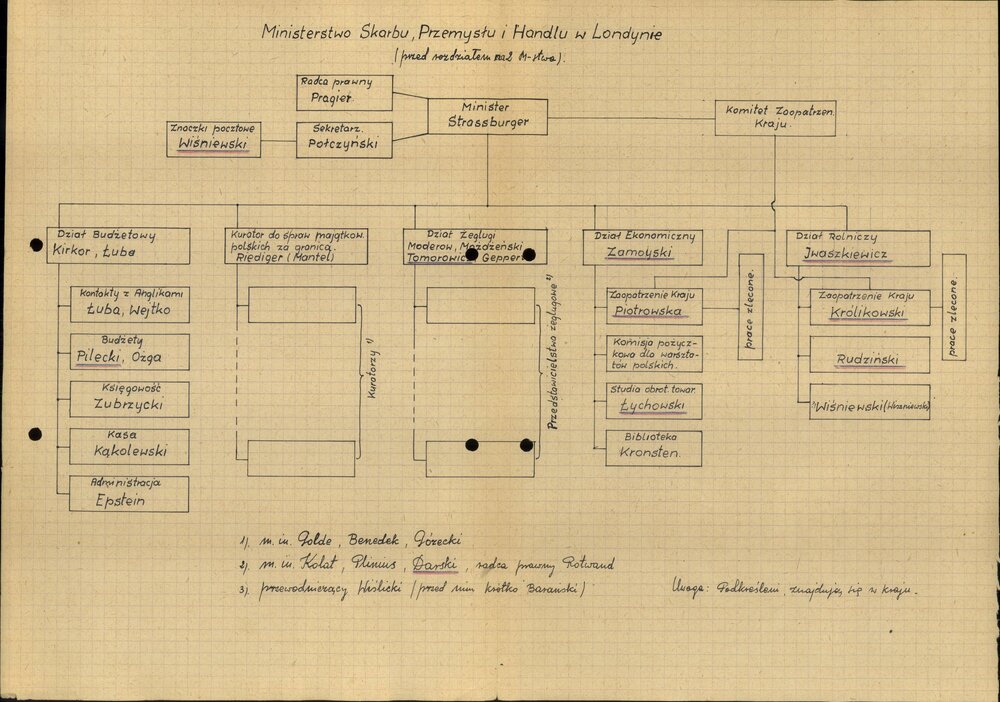 Ministerstwo Skarbu, Przemysłu i Handlu w Londynie
(przed rozdziałem na 2 M-stwa).
Radca prawny
Pragier.
Minister
Strassburger
Komitet Zaopatrzen.
Kraju.
Znaczki pocztowe
Wiśniewski
Sekretarz.
Połczyński
Dział Budżetowy
Kirkor, Łuba
Kurator do spraw majątków
polskich za granicą.
Riediger (Mantel)
Dział Żeglugi
Moderow, Możdżeński
Tomorowicz, Geppert
Dział Ekonomiczny
Zamoyski
Dział Rolniczy
Jwaszkiewicz
Kontakty z Anglikami
Łuba, Wejtko
Budżety
Pilecki, Ożga
Księgowość
Zubrzycki
Kasa
Kąkolewski
Administracja
Epstein
Kuratorzy 1)
Przedstawicielstwa żeglugowe 2)
Zaopatrzenie Kraju
Piotrowska
Komisja pożycz-
kowa dla warszta-
tów polskich.
Studia obrot. towar.
Łychowski
Biblioteka
Kronsten.
prace zlecone.
Zaopatrzenie Kraju
Królikowski
Rudziński
Wiśniewski
prace zlecone.
1). m. in. Golde, Benedek, Górecki
2). m. in. Kolat, Plinius, Darski, radca prawny Rotwand
3). przewodniczący Wiślicki (przed nim krótko Barański)
Uwaga: Podkreśleni, znajdują się w kraju.